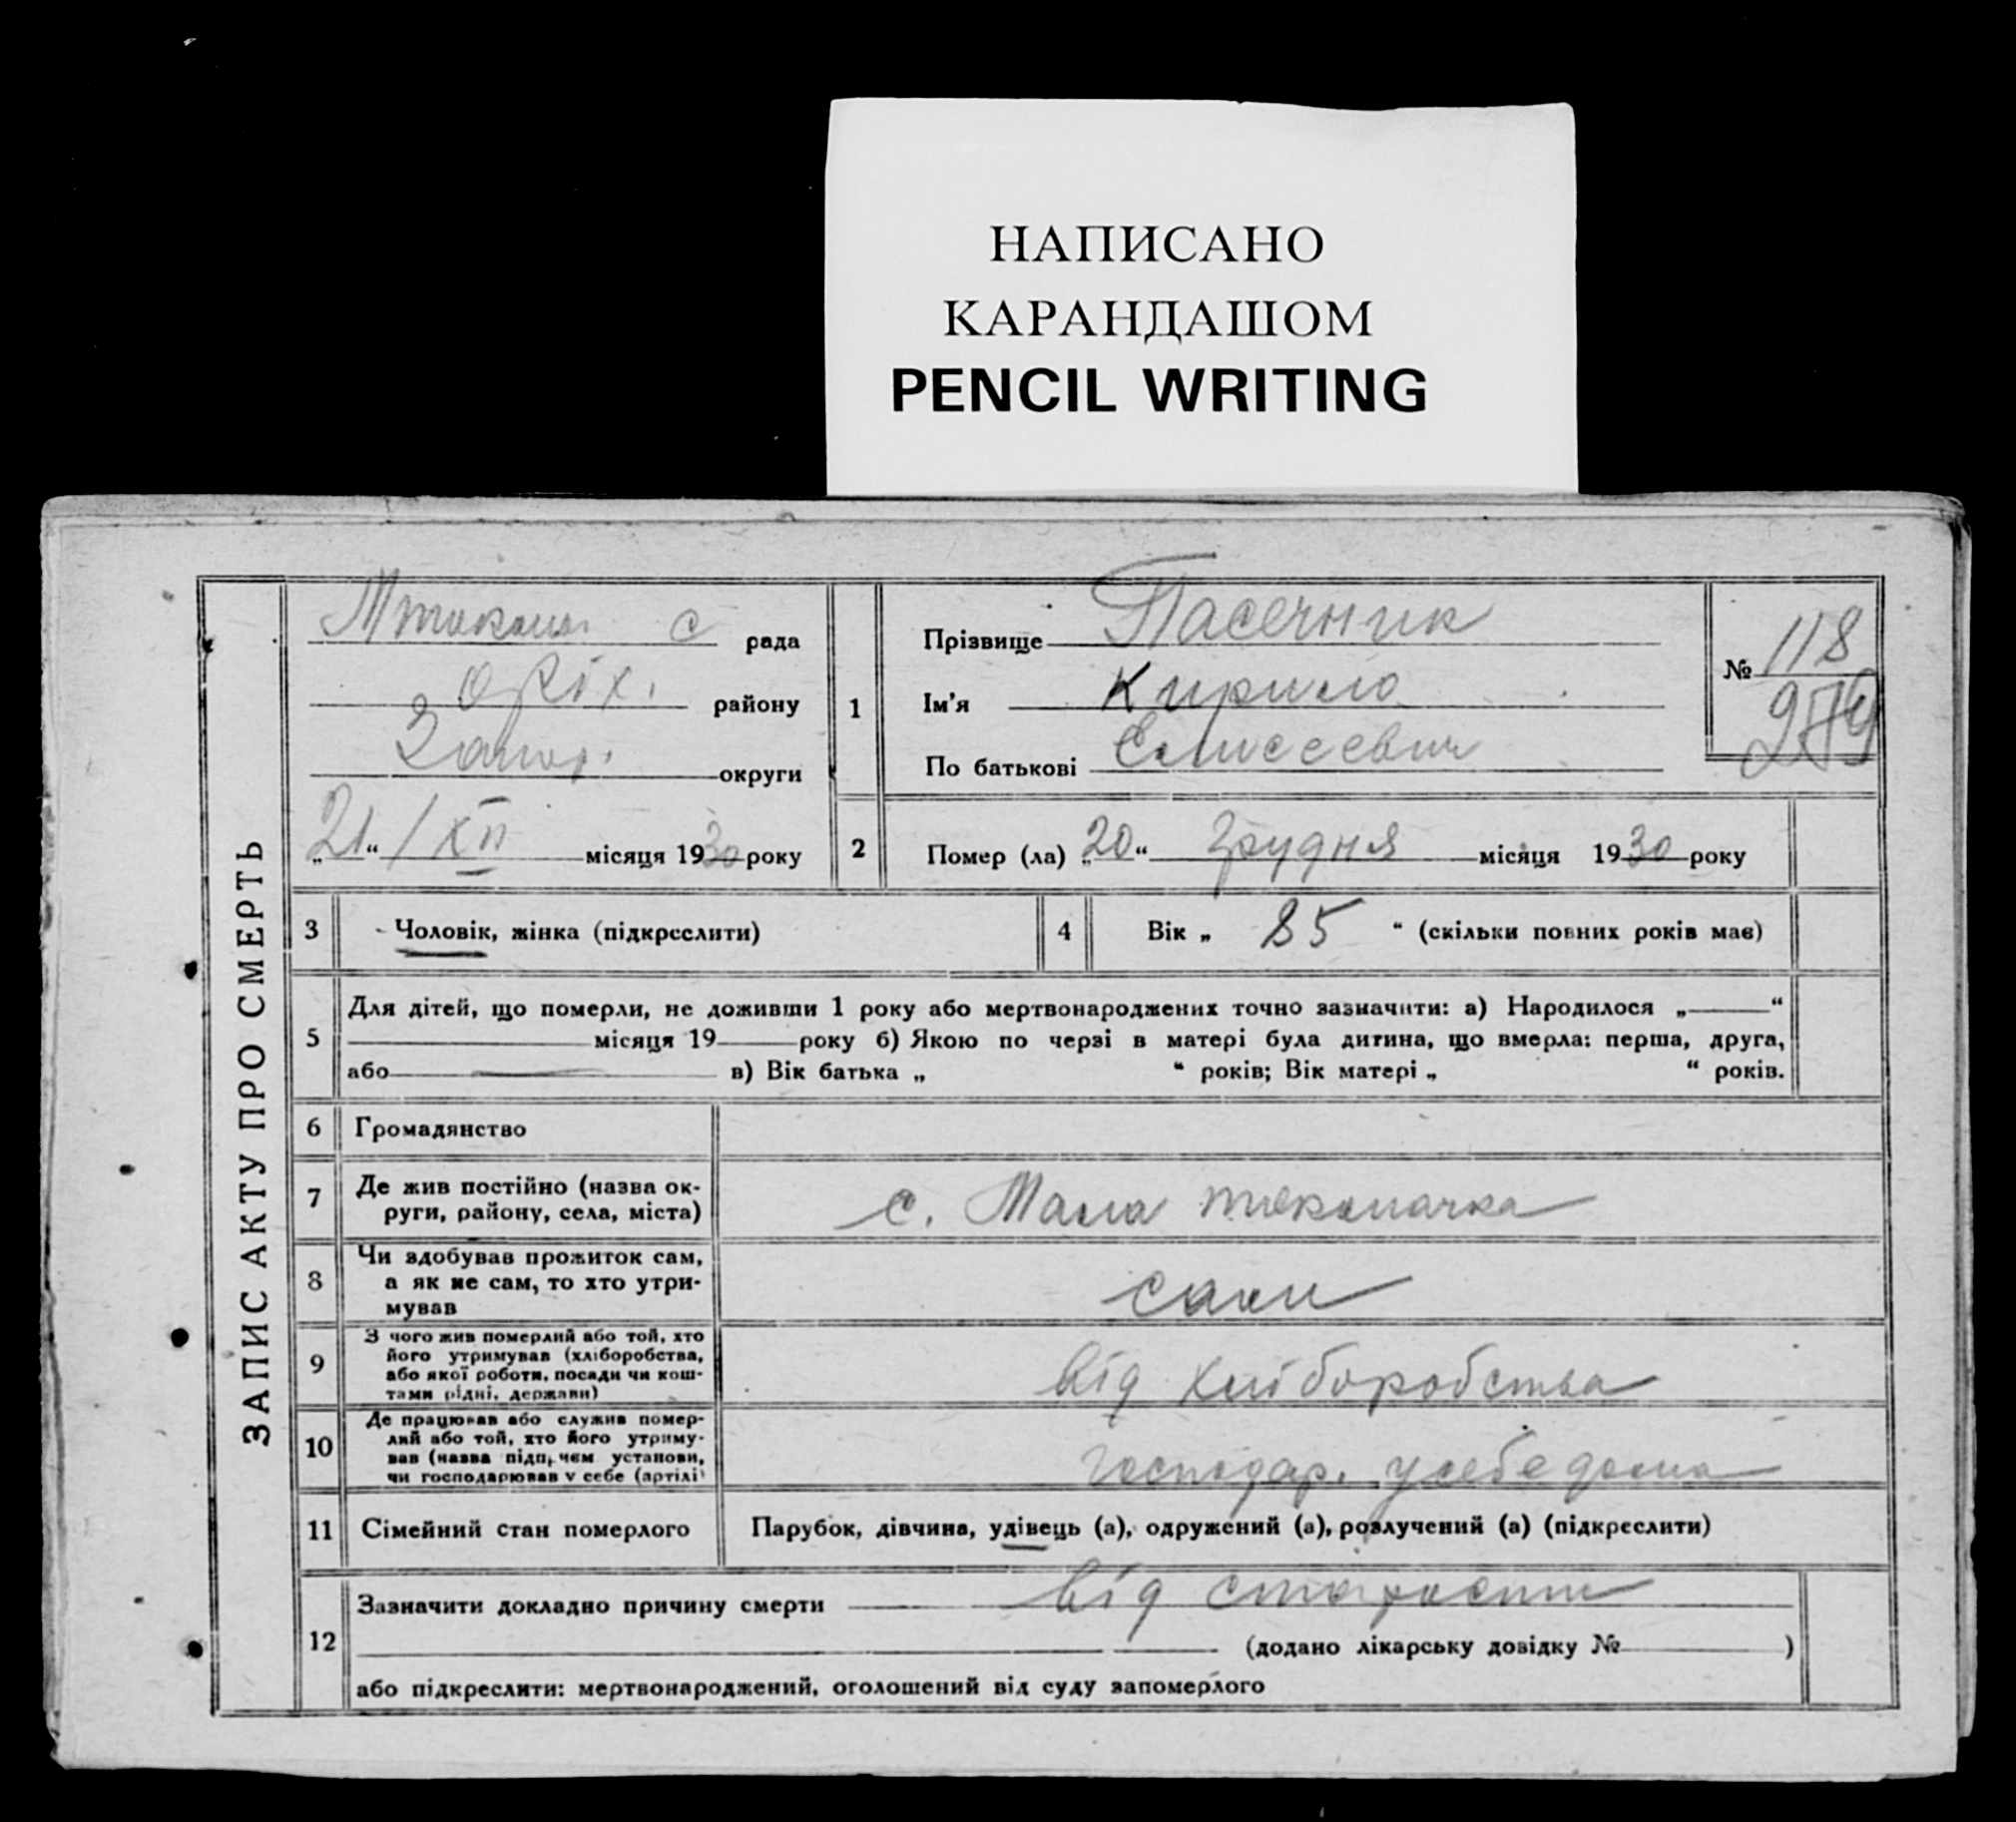 НАПИСАНО
КАРАНДАШОМ
PENCIL WRITING
ЗАПИС АКТУ ПРО СМЕРТЬ
Мтокма. с рада
Оріх. району
Запор. округи
„21“ / XII місяця 1930 року
1
Прізвище Пасечник
Ім'я Кирило
По батькові Елисеевич
№ 118
2
Помер (ла) „20“ Грудня місяця 1930 року
3 Чоловік, жінка (підкреслити)
4 Вік „ 85 “ (скільки повних років має)
5
Для дітей, що померли, не доживши 1 року або мертвонароджених точно зазначити: а) Народилося „ “
місяця 19 року б) Якою по черзі в матері була дитина, що вмерла: перша, друга,
або в) Вік батька „ “ років; Вік матері „ “ років.
6 Громадянство
7 Де жив постійно (назва ок-
руги, району, села, міста)
с. Мала токмачка
8 Чи здобував прожиток сам,
а як не сам, то хто утри-
мував
сам
9 З чого жив померлий або той, хто
його утримував (хліборобства,
або якої роботи, посади чи кош-
тами рідні, держави)
від хліборобства
10 Де працював або служив помер-
лий або той, хто його утриму-
вав (назва підпр.чем установи,
чи господарював у себе (артілі)
господар. у себе дома
11 Сімейний стан померлого
Парубок, дівчина, удівець (а), одружений (а), розлучений (а) (підкреслити)
12
Зазначити докладно причину смерти від старости
(додано лікарську довідку № )
або підкреслити: мертвонароджений, оголошений від суду запомерлого